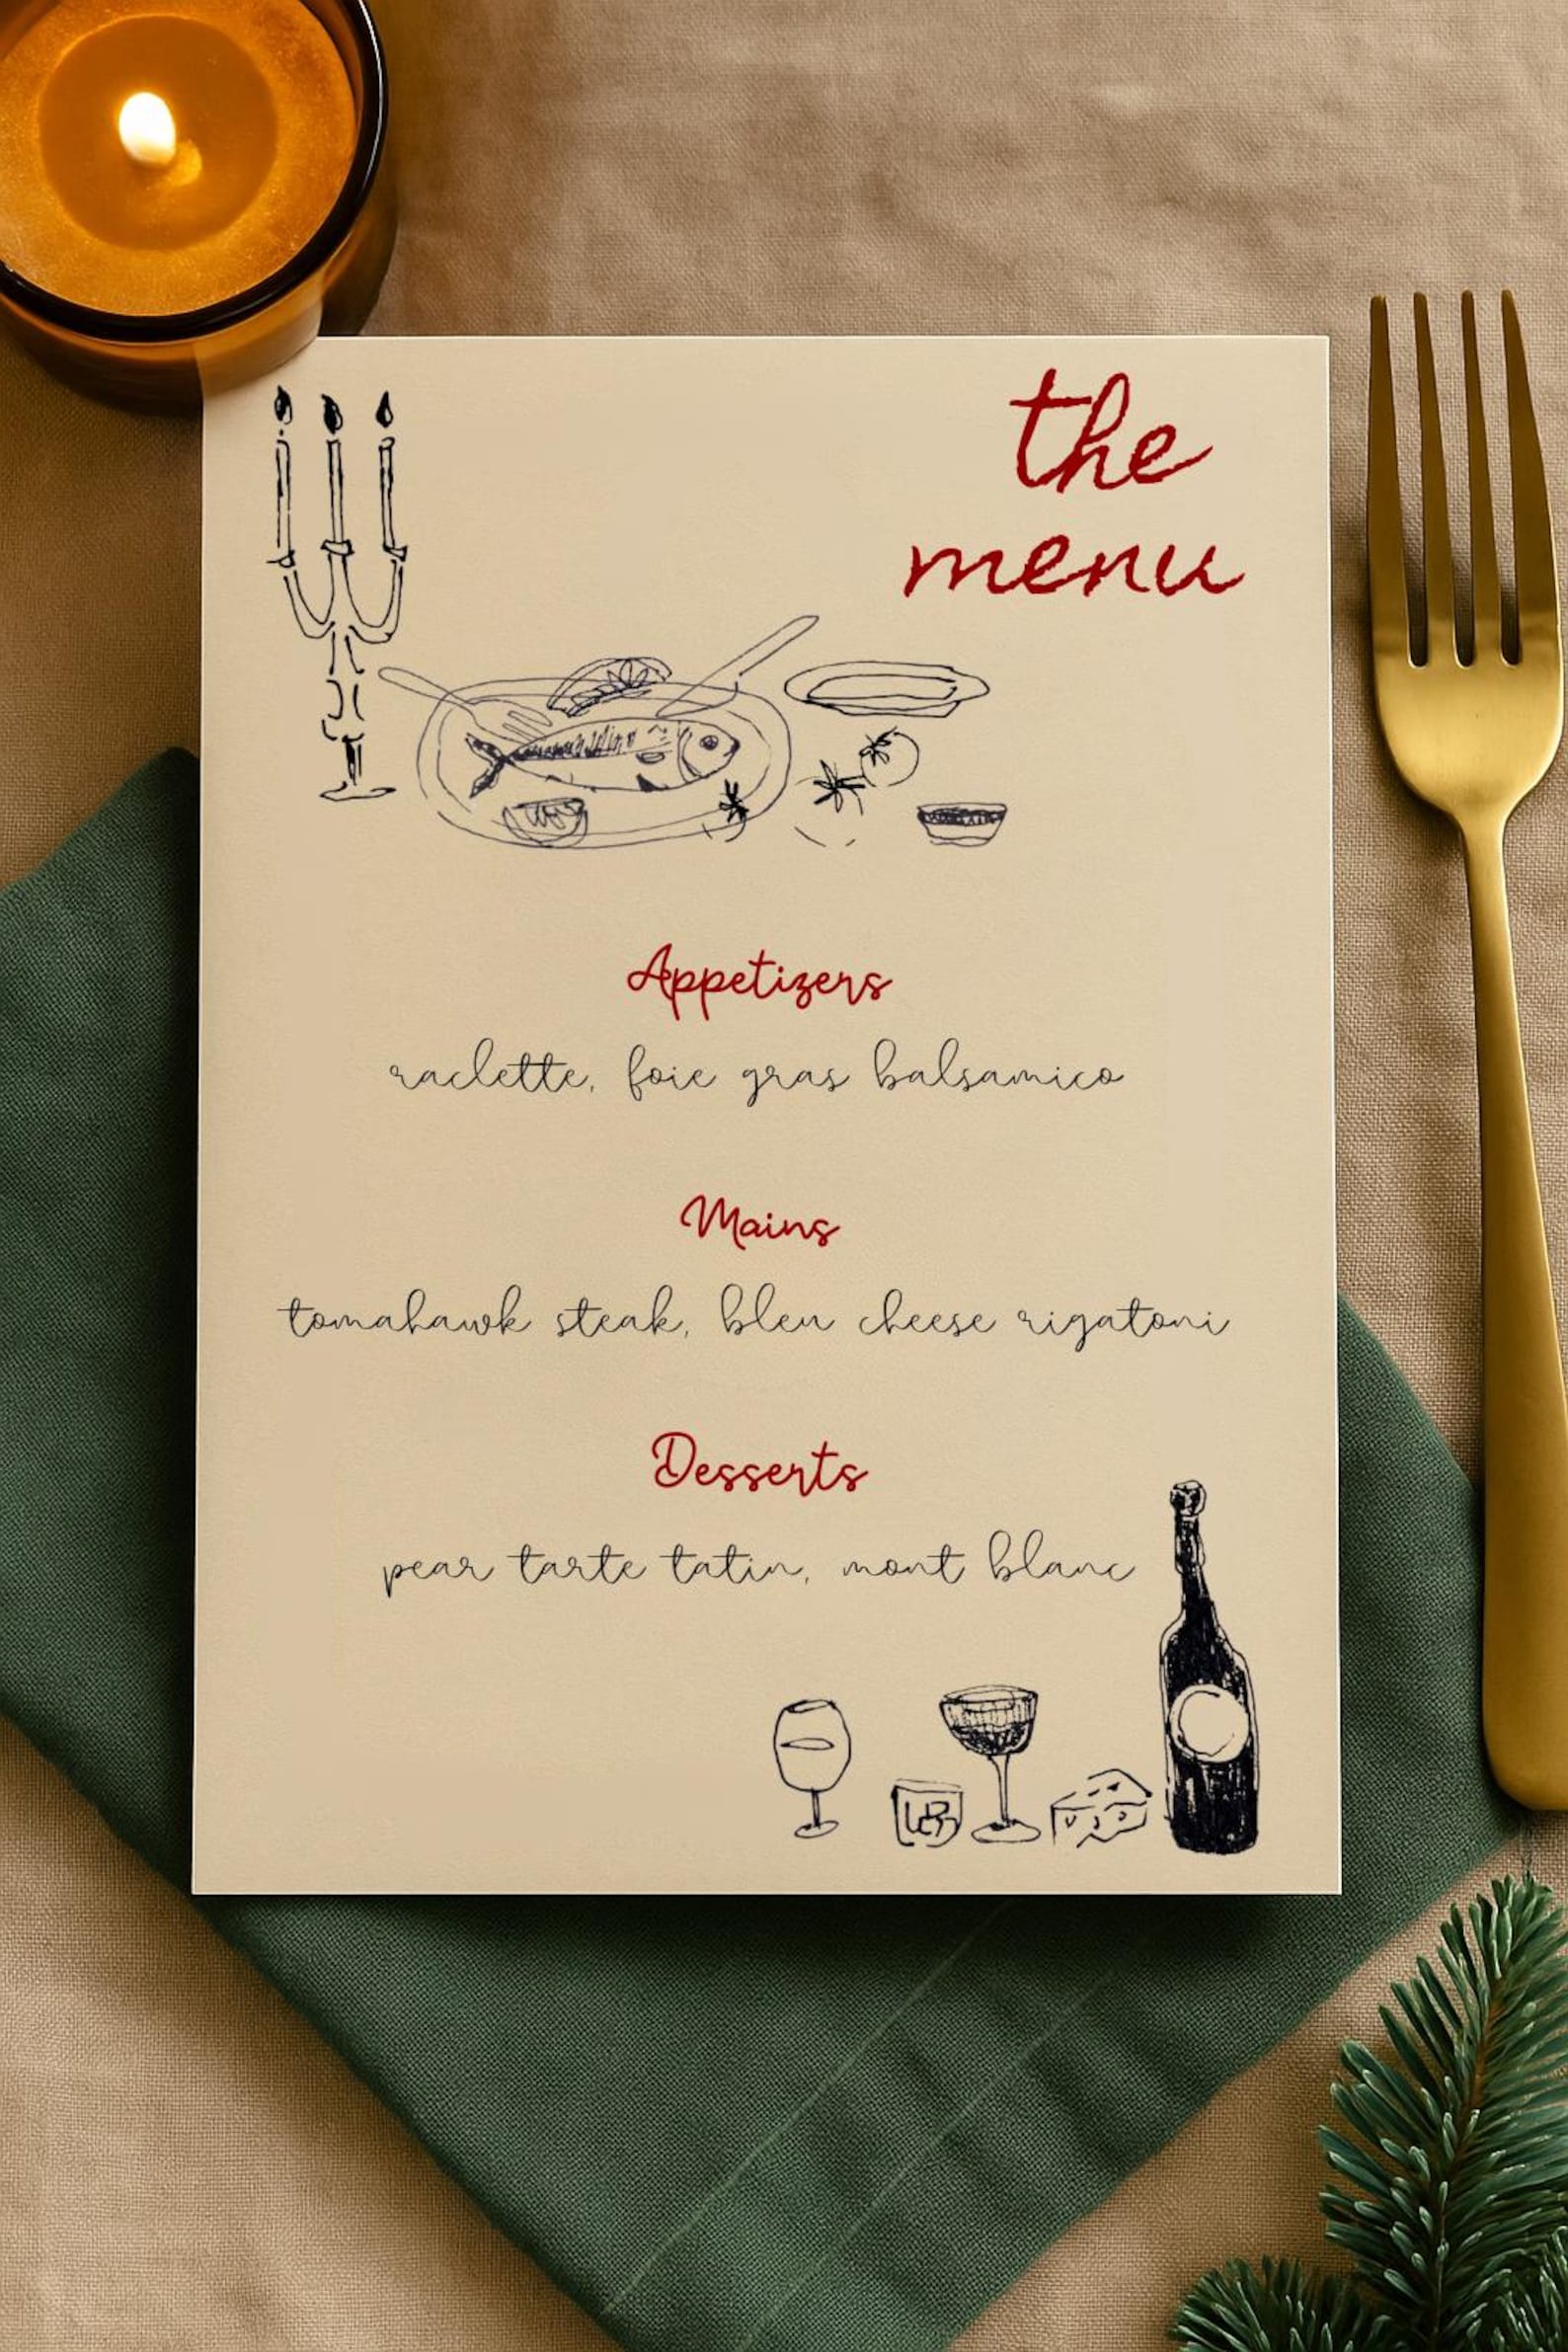 the
menu
Appetizers
raclette, foie gras balsamico
Mains
tomahawk steak, bleu cheese rigatoni
Desserts
pear tarte tatin, mont blanc